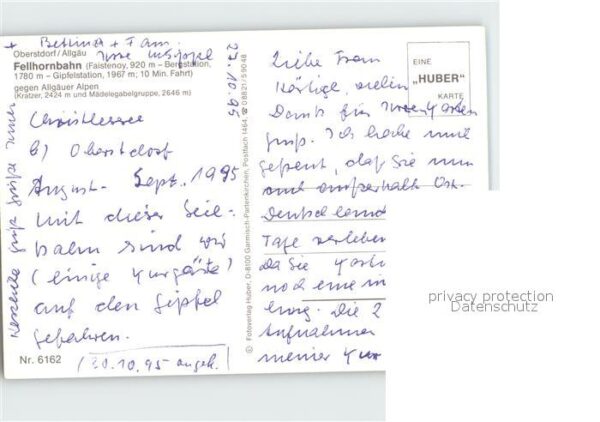 + Bettina + Fam.
Oberstdorf/Allgäu
Fellhornbahn (Faistenoy, 920 m – Bergstation,
1780 m – Gipfelstation, 1967 m; 10 Min. Fahrt)
gegen Allgäuer Alpen
(Kratzer, 2424 m und Mädelegabelgruppe, 2646 m)
b) Oberstdorf
August - Sept. 1995
mit dieser Seil-
bahn sind wir
(einige Kurgäste)
auf den Gipfel
gefahren.
Nr. 6162
(20.10.95 angek.)
© Fotoverlag Huber, D-8100 Garmisch-Partenkirchen, Postfach 1464, ☎ 08821/59048
27.10.95
Liebe Frau
vielen
Dank für Ihren Karten
gruß. Ich habe mich
gefreut, daß Sie nun
auch außerhalb Ost-
Deutschlands
Tage verleben
da Sie
noch eine
Die 2
Aufnahmen
meiner Kur
EINE
„HUBER"
KARTE
privacy protection
Datenschutz